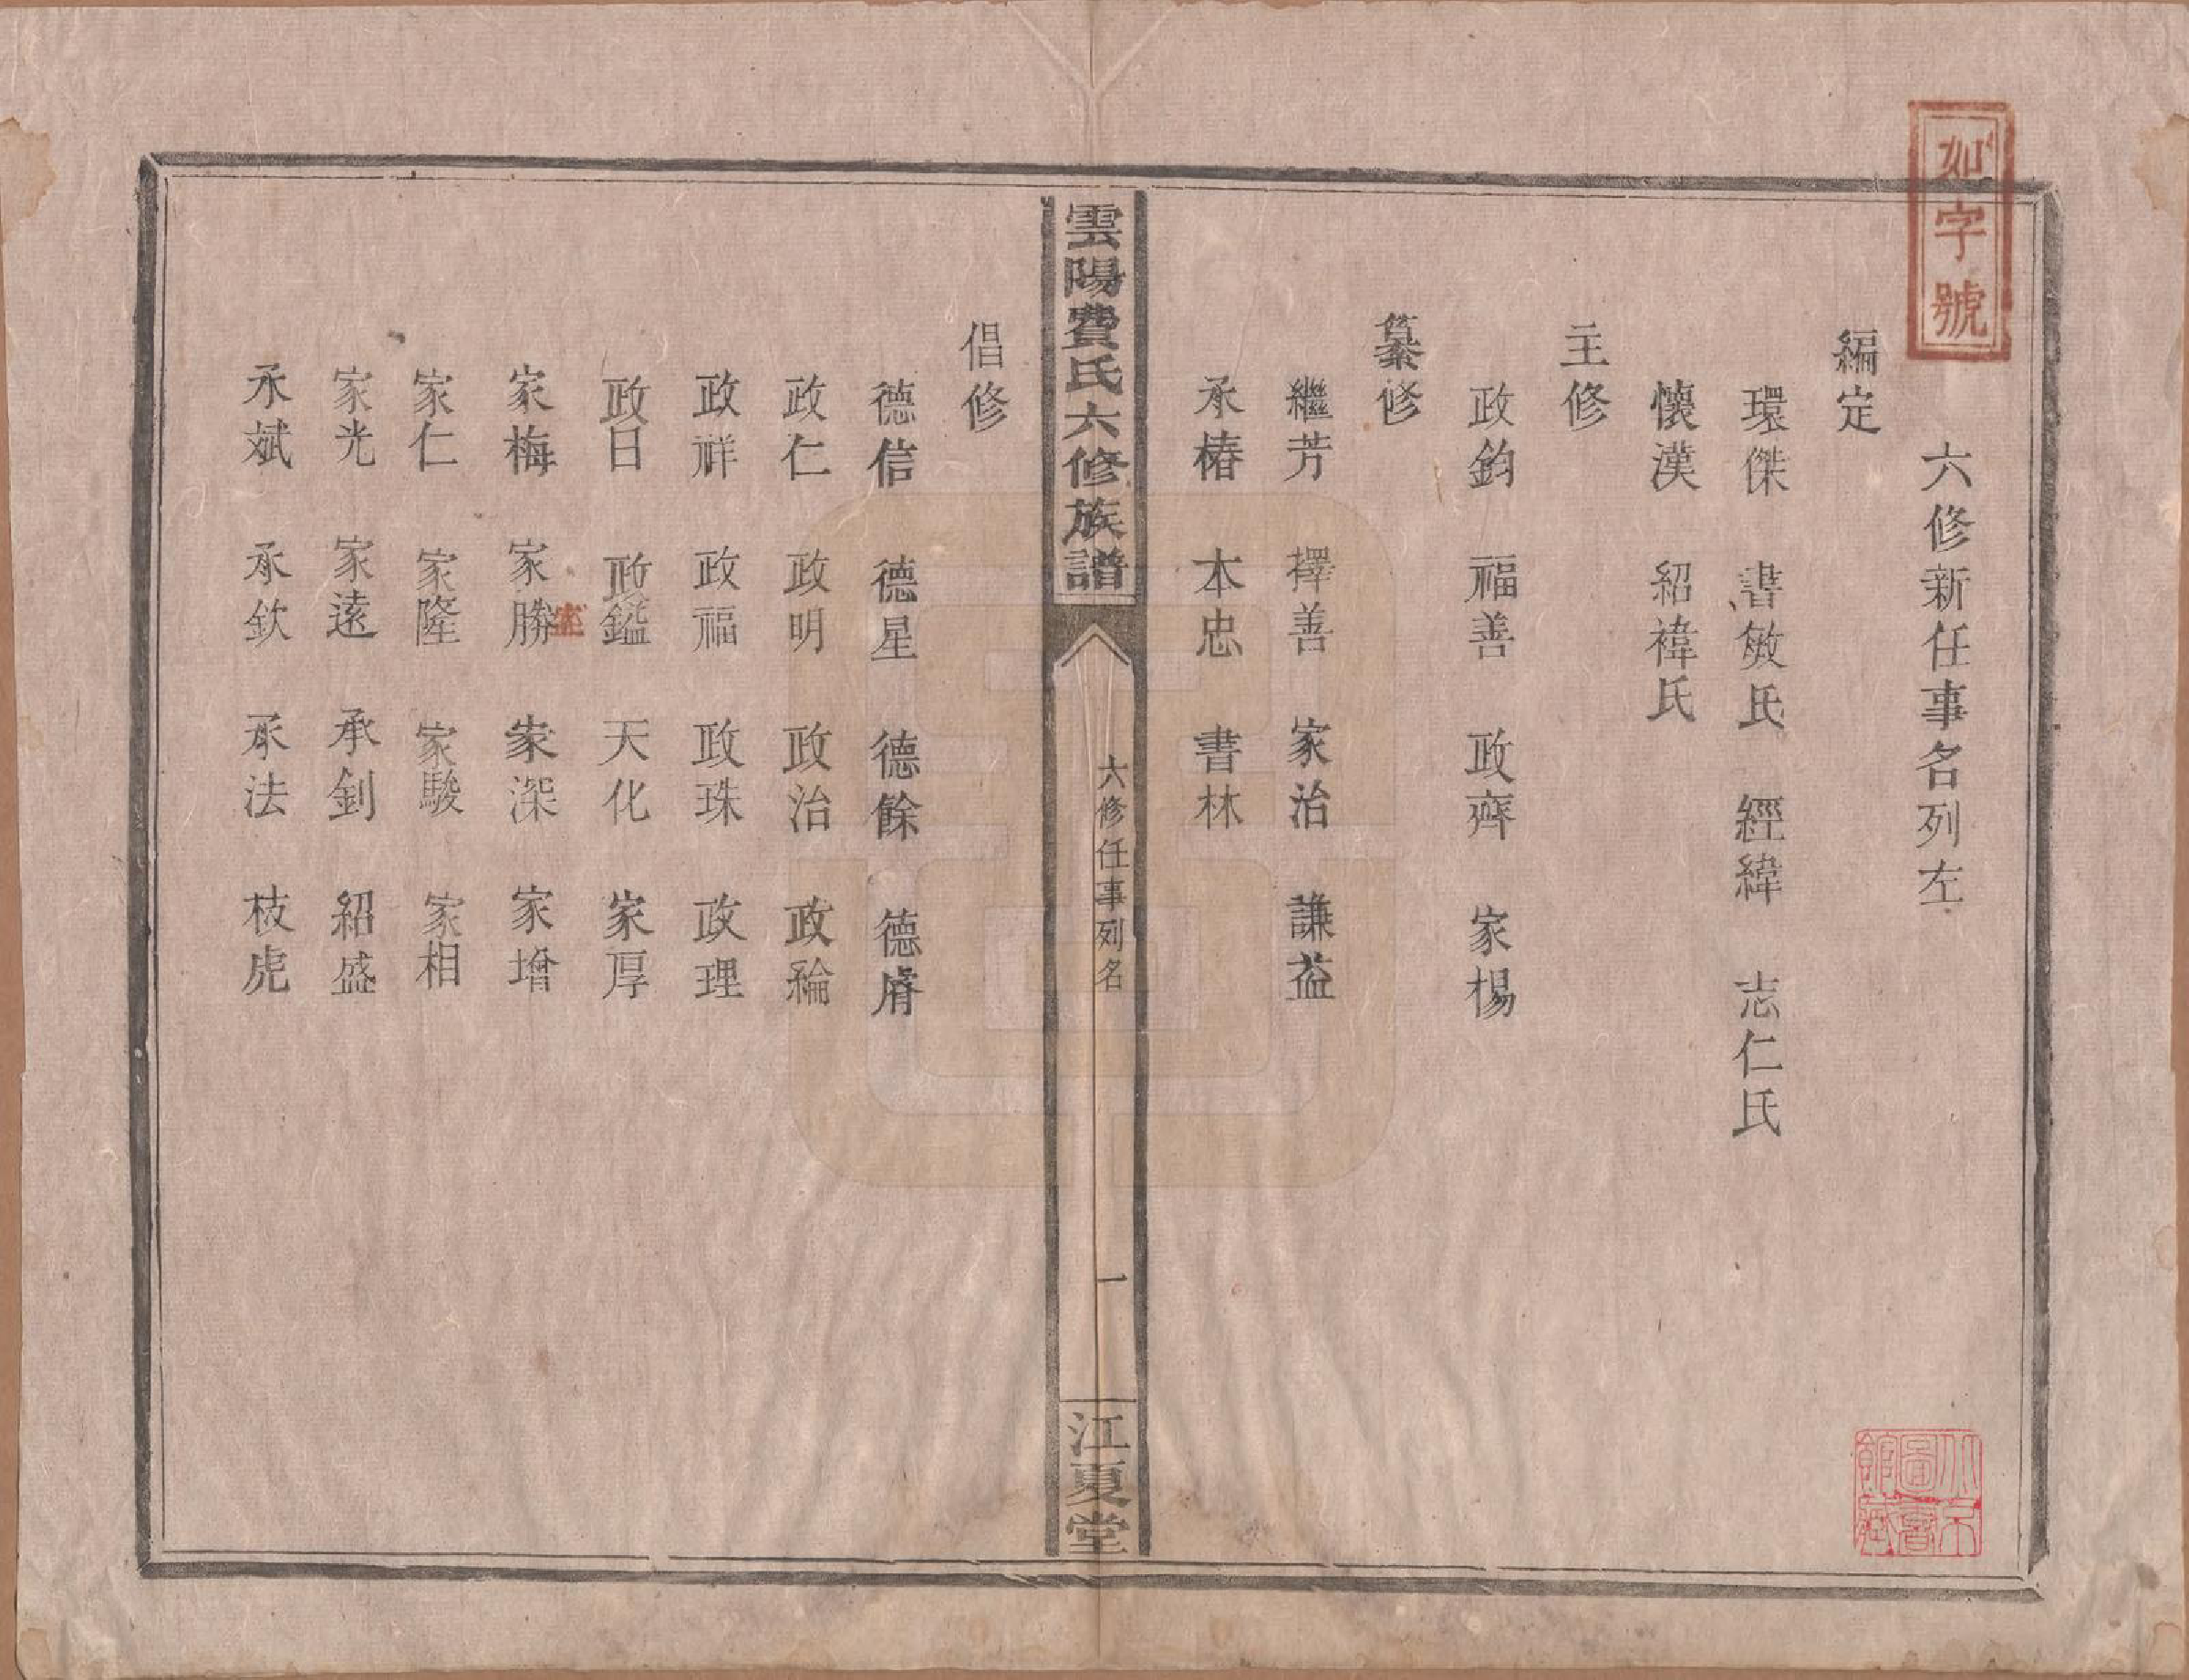 如字號
六修新任事名列左
編定
環傑 書敏氏 經緯 志仁氏
懷漢 紹禕氏
主修
政鈞 福善 政齊 家楊
纂修
繼芳 擇善 家治 謙益
承椿 本忠 書林
雲陽費氏六修族譜
六修任事列名
一
江夏堂
倡修
德信 德星 德餘 德
政仁 政明 政治 政綸
政祥 政福 政珠 政理
政日 政鎰 天化 家厚
家梅 家勝 家深 家增
家仁 家隆 家駿 家相
家光 家遠 承釗 紹盛
承斌 承欽 承法 枝虎
北京圖書館藏